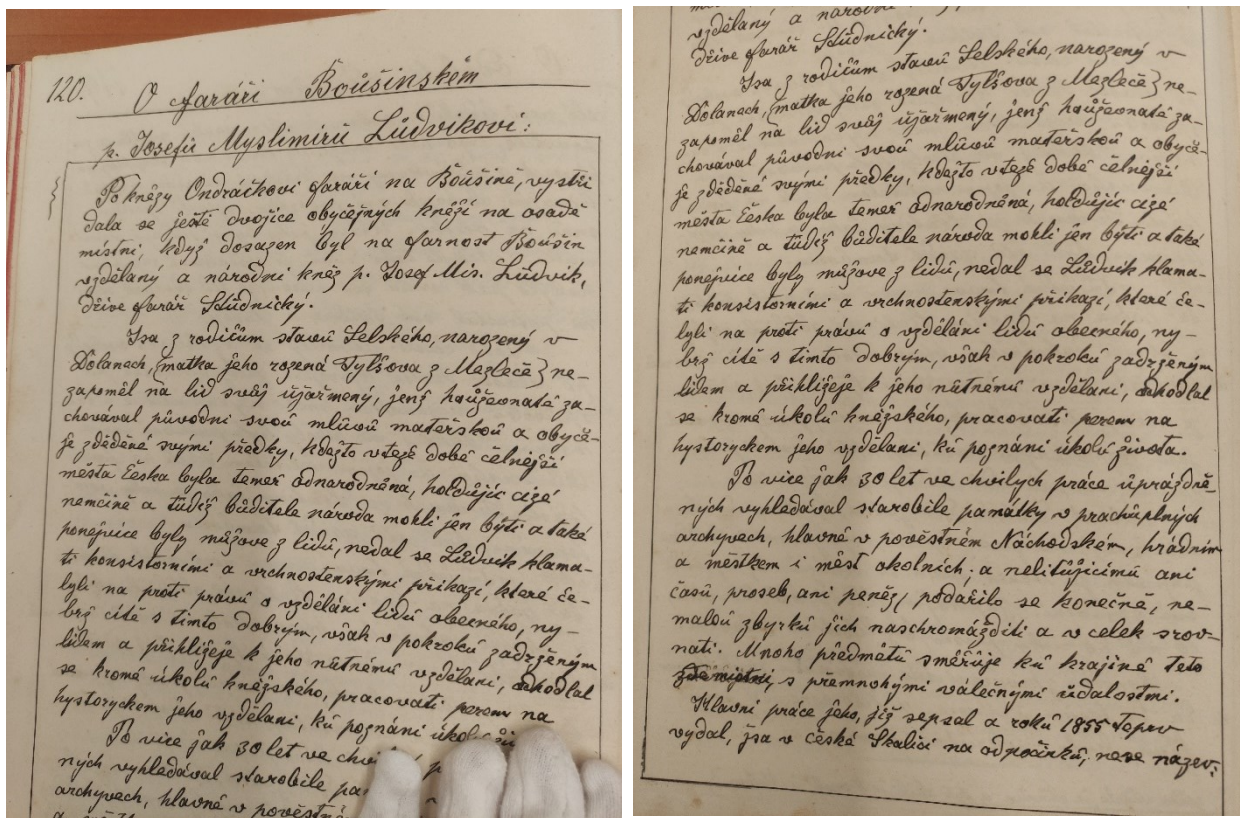 120. O faráři Boušinském
p. Josefu Myslimírů Lůdvikovi:
Po knězy Ondráčkovi faráři na Boušině, vystří
dala se ještě dvojice obyčejných kněží na osadě
místní, když dosazen byl na farnost Boušin
vzdělaný a národní kněz p. Josef Mis. Lůdvik,
dříve farář Stůdnický.
Jsa z rodičům stavů Selského, narozený v
Dolanach, {matka jeho rozená Tylšova z Mezleče} ne-
zapoměl na lid svůj újařmený, jenž houževnatě za-
chovával původni svoů mlůvů mateřskoů a obyče-
je zděděné svými předky, kdežto vtéže době čelnější
města Česka byla temeř odnarodněná, holdůjíc cizé
nemčině a tůdiž bůditele národa mohli jen býti a také
ponejvice byly můžove z lidů, nedal se Lůdvik klama-
ti konsistorními a vrchnostenskými přikazí, které če-
lyli na proti právů o vzděláni lidů obecného, ny-
brž cítě s tímto dobrým, však v pokroků zadrženým
lidem a přihlížeje k jeho nůtnému vzdělani, odhodlal
se kromě úkolů kněžského, pracovati perem na
hystoryckem jeho vzdělani, ků poznáni úkolů
Po více jak 30 let ve
ných vyhledával starobile
archyvech, hlavně v
vzdělaný a národní
dříve farář Stůdnický.
Jsa z rodičům stavů Selského, narozený v
Dolanach, {matka jeho rozená Tylšova z Mezleče} ne-
zapoměl na lid svůj újařmený, jenž houževnatě za-
chovával původni svoů mlůvů mateřskoů a obyče-
je zděděné svými předky, kdežto vtéže době čelnější
města Česka byla temeř odnarodněná, holdůjíc cizé
nemčině a tůdiž bůditele národa mohli jen býti a také
ponejvice byly můžove z lidů, nedal se Lůdvik klama-
ti konsistorními a vrchnostenskými přikazí, které če-
lyli na proti právů o vzděláni lidů obecného, ny-
brž cítě s tímto dobrým, však v pokroků zadrženým
lidem a přihlížeje k jeho nůtnému vzdělani, odhodlal
se kromě úkolů kněžského, pracovati perem na
hystoryckem jeho vzdělani, ků poznáni úkolů života.
Po více jak 30 let ve chvilych práce ůprázdně-
ných vyhledával starobile památky v prachůplných
archyvech, hlavně v pověstném Náchodském, hrádním
a městkem i měst okolních; a nelitůjicímů ani
časů, proseb, ani peněz, podařilo se konečně, ne-
maloů zbyrků jich naschromážditi a v celek srov-
nati. Mnoho předmětů směřůje ků krajině teto
s přemnohými válečnými ůdalostmi.
Hlavní práce jeho, již sepsal a roků 1855 Teprv
vydal, jsa v české Skalici na odpočinků, nese název: